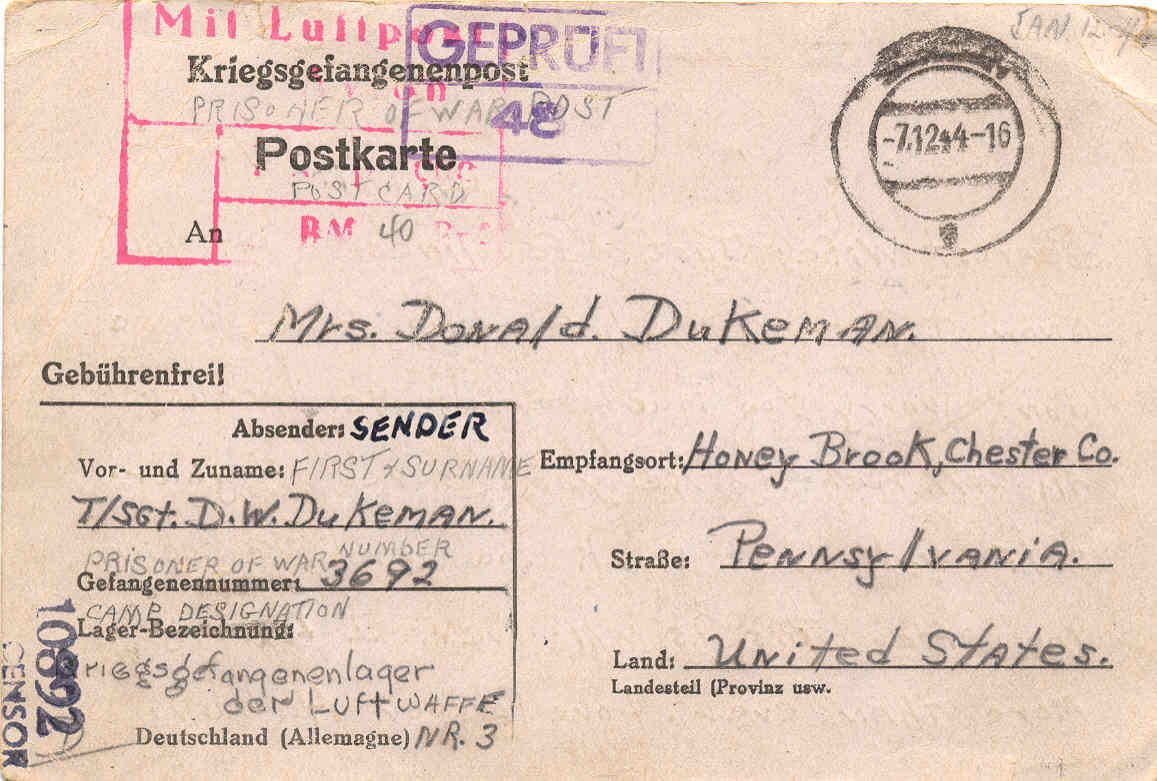 Mit Luftpost
GEPRÜFT
JAN. 12
Kriegsgefangenenpost
PRISONER OF WAR POST
48
-7.12.44-16
Postkarte
POSTCARD
An
RM 40
Mrs. Donald. Dukeman.
Gebührenfrei!
Absender: SENDER
Vor- und Zuname: FIRST & SURNAME
T/Sgt. D.W. Dukeman.
PRISONER OF WAR NUMBER
Gefangenennummer: 3692
CAMP DESIGNATION
Lager-Bezeichnung:
Kriegsgefangenenlager
der LUFTWAFFE
Deutschland (Allemagne) NR. 3
Empfangsort: Honey Brook, Chester Co.
Straße: Pennsylvania.
Land: United States.
Landesteil (Provinz usw.
10892
CENSOR